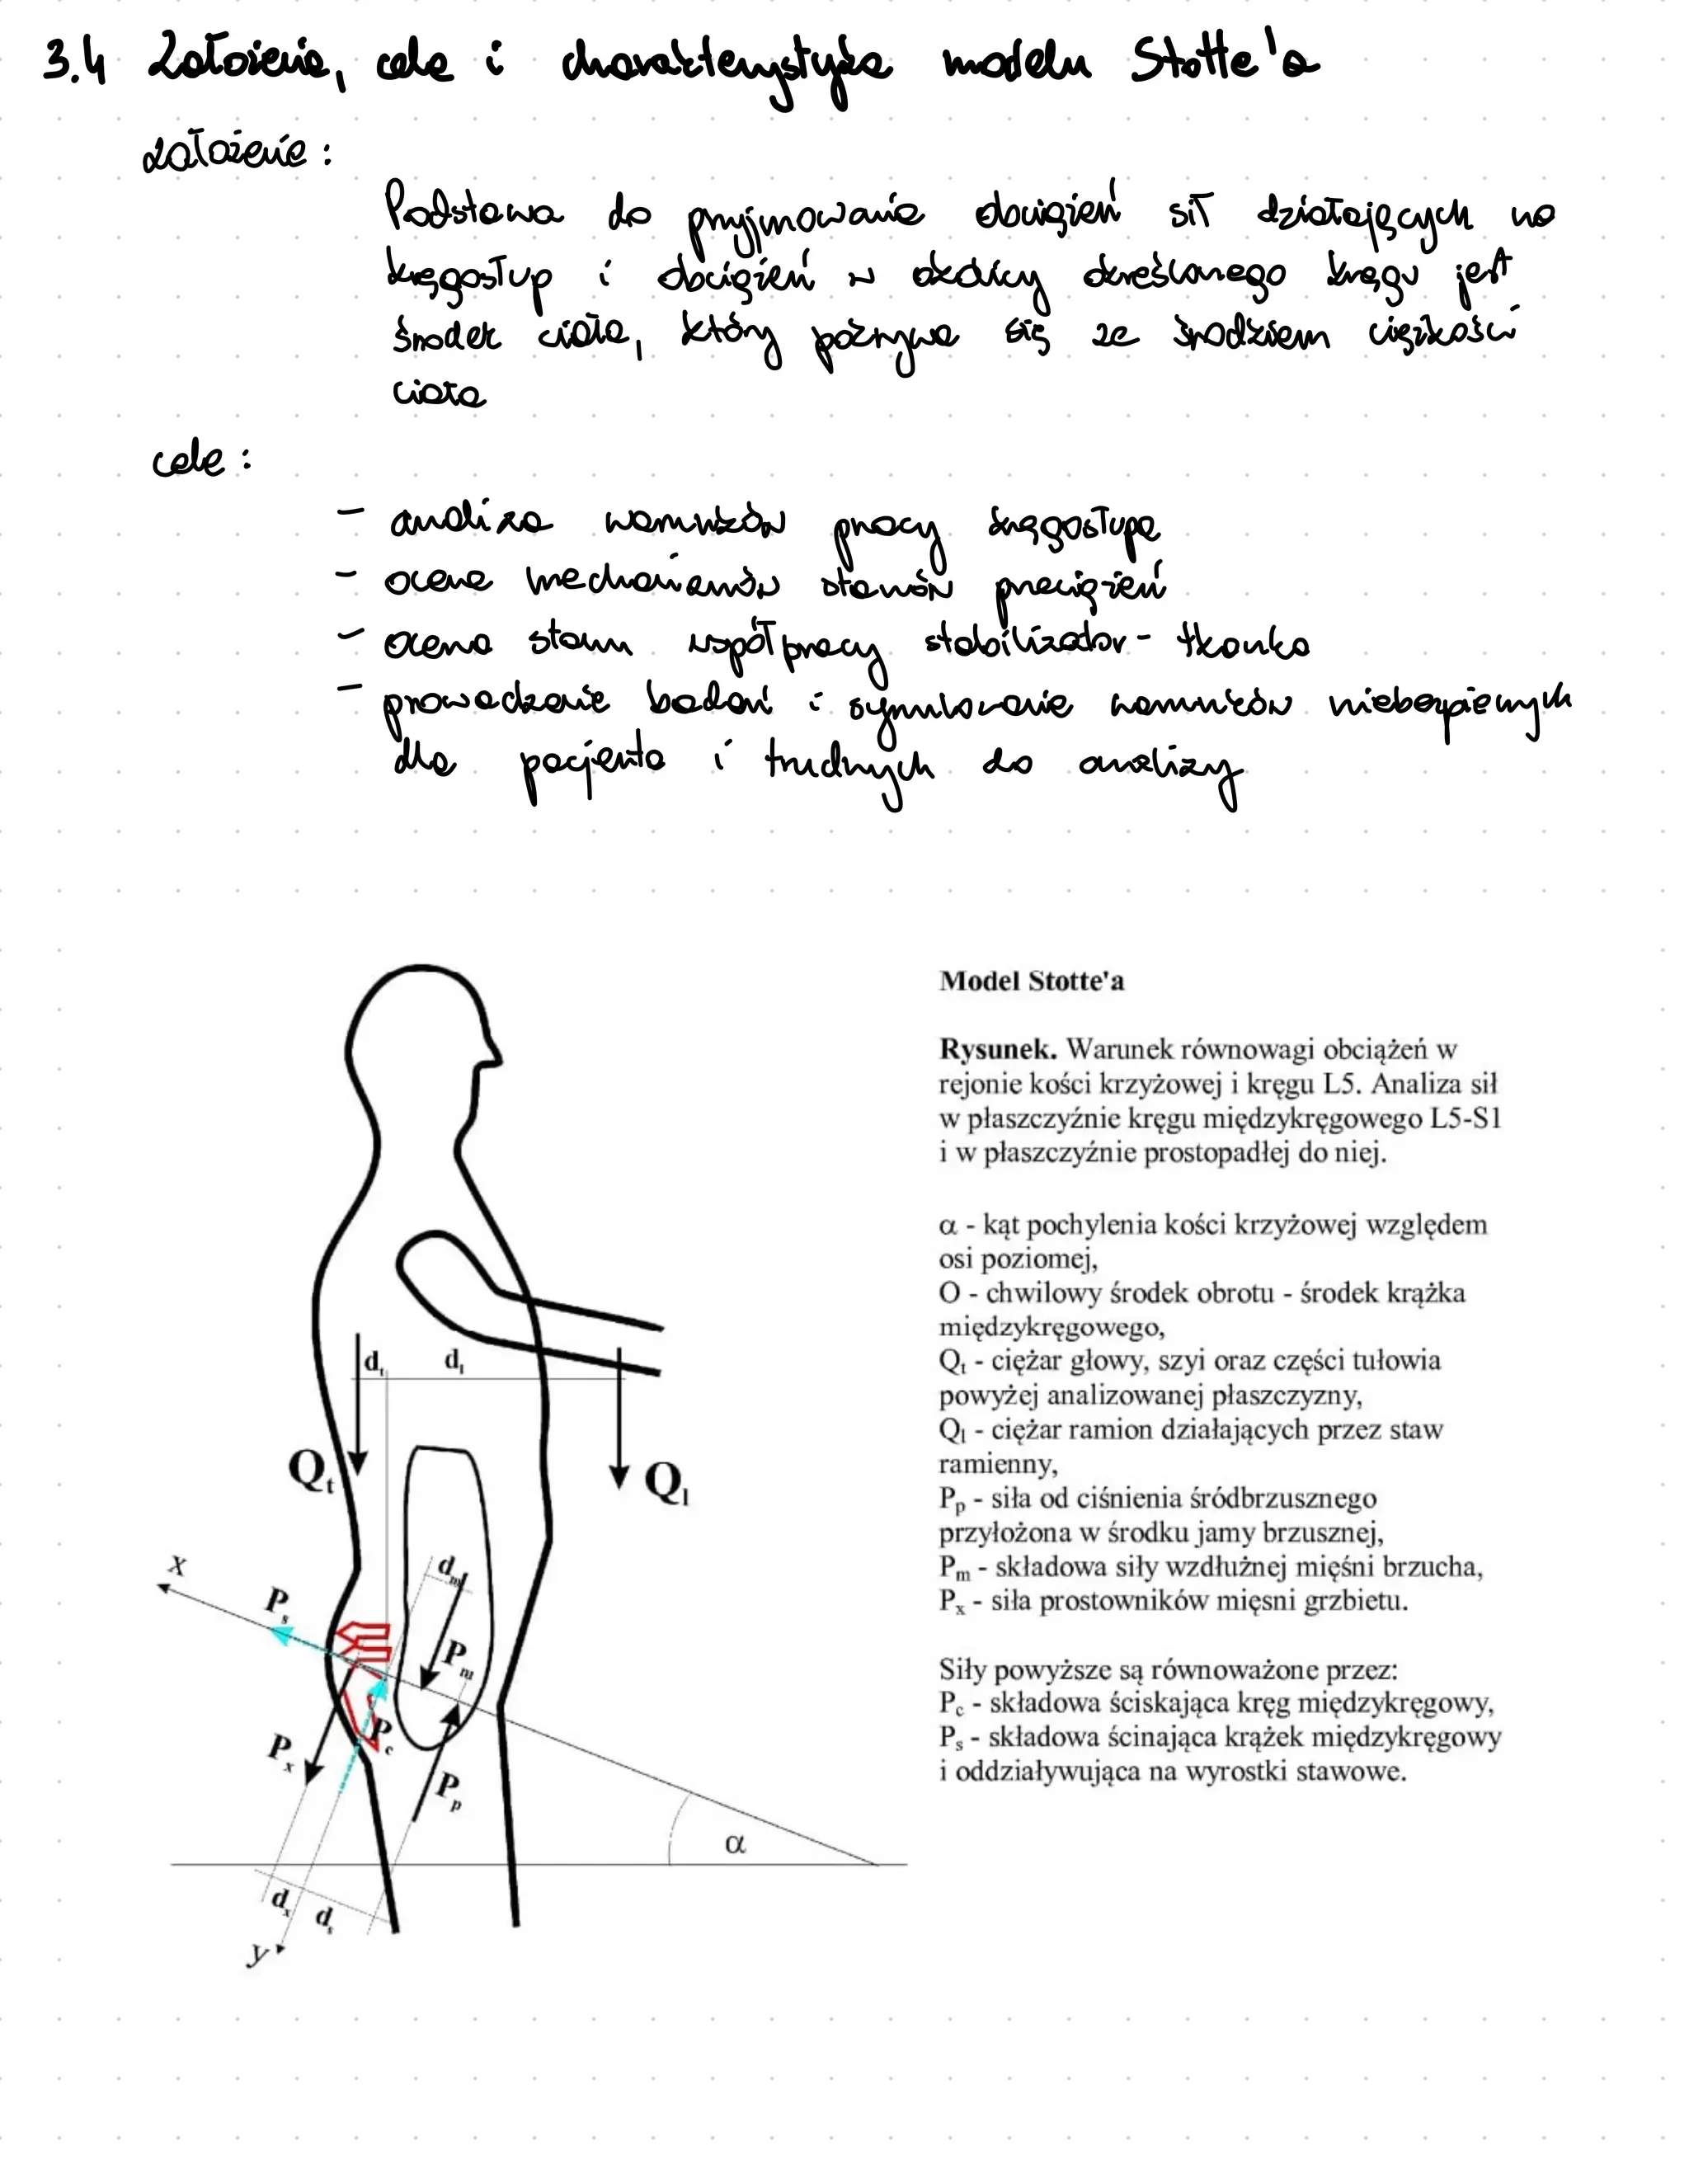 3.4 Założenia, cele i charakterystyka modelu Stotte'a
założenie :
Podstawa do przyjmowania obciążeń sił działających na
kręgosłup i obciążeń w okolicy określonego kręgu jest
środek ciała, który pokrywa się ze środkiem ciężkości
ciała
cele :
- analiza warunków pracy kręgosłupa
- ocena mechanizmów stanów przeciążeń
- ocena stanu współpracy stabilizator - tkanka
- prowadzenie badań i symulowanie warunków niebezpiecznych
dla pacjenta i trudnych do analizy
Model Stotte'a
Rysunek. Warunek równowagi obciążeń w
rejonie kości krzyżowej i kręgu L5. Analiza sił
w płaszczyźnie kręgu międzykręgowego L5-S1
i w płaszczyźnie prostopadłej do niej.
α - kąt pochylenia kości krzyżowej względem
osi poziomej,
O - chwilowy środek obrotu - środek krążka
międzykręgowego,
Qt - ciężar głowy, szyi oraz części tułowia
powyżej analizowanej płaszczyzny,
Ql - ciężar ramion działających przez staw
ramienny,
Pp - siła od ciśnienia śródbrzusznego
przyłożona w środku jamy brzusznej,
Pm - składowa siły wzdłużnej mięśni brzucha,
Px - siła prostowników mięsni grzbietu.
Siły powyższe są równoważone przez:
Pc - składowa ściskająca kręg międzykręgowy,
Ps - składowa ścinająca krążek międzykręgowy
i oddziaływująca na wyrostki stawowe.
dt dl
Qt Ql
x
dm
Ps
Pm
Pc
Px
Pp
α
dx ds
y